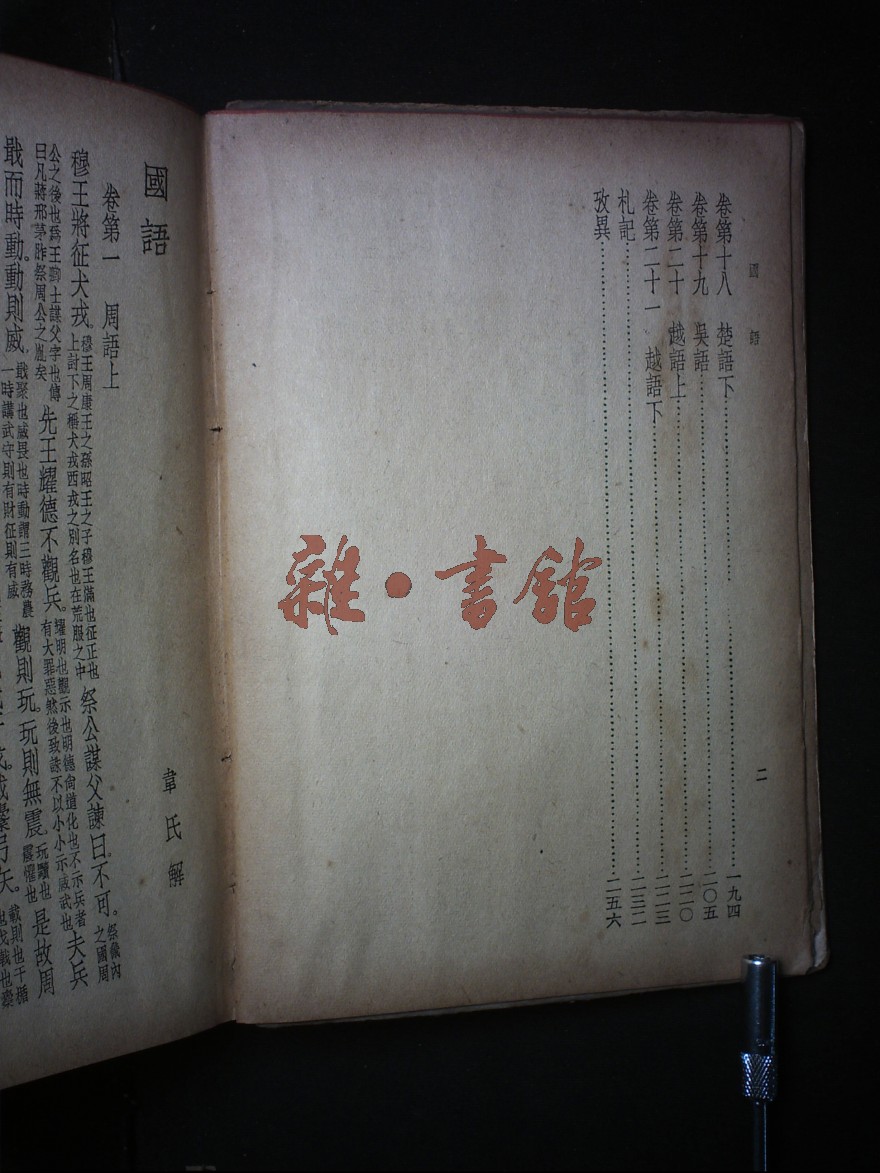 國語 二
卷第十八 楚語下……一九四
卷第十九 吳語……二〇五
卷第二十 越語上……二二〇
卷第二十一 越語下……二二三
札記……二三二
攷異……二五六
國語
韋氏解
卷第一 周語上
穆王將征犬戎。
穆王周康王之孫昭王之子穆王滿也征正也
上討下之稱犬戎西戎之別名也在荒服之中
祭公謀父諫曰。不可。
祭畿內
之國周
公之後也爲王卿士謀父字也傳
曰凡蔣邢茅胙祭周公之胤矣
先王耀德不觀兵。
耀明也觀示也明德尚道化也不示兵者
有大罪惡然後致誅不以小小示威武也
夫兵
戢而時動動則威。
戢聚也威畏也時動謂三時務農
一時講武守則有財征則有威
觀則玩。玩則無震。
玩黷也
震懼也
是故周
載櫜弓矢。
載則也干楯
也戈戟也櫜
雜·書館